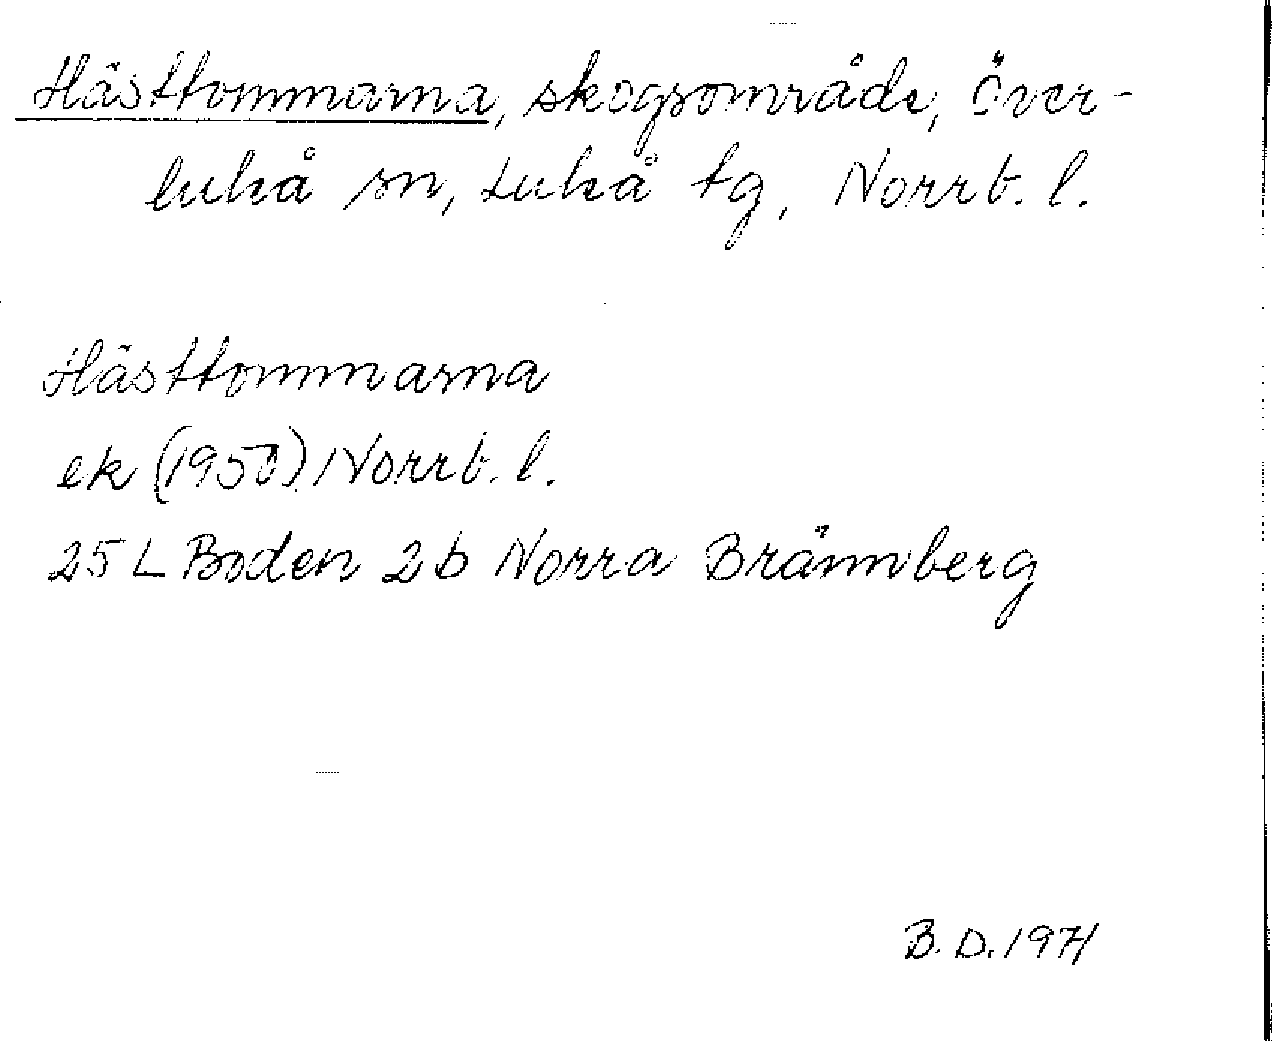 Hästtommarna, skogsområde, Över-
luleå sn, Luleå tg, Norrb. l.
Hästtommarna
ek (1950) Norrb. l.
25 L Boden 2b Norra Brännberg
B. D. 1971